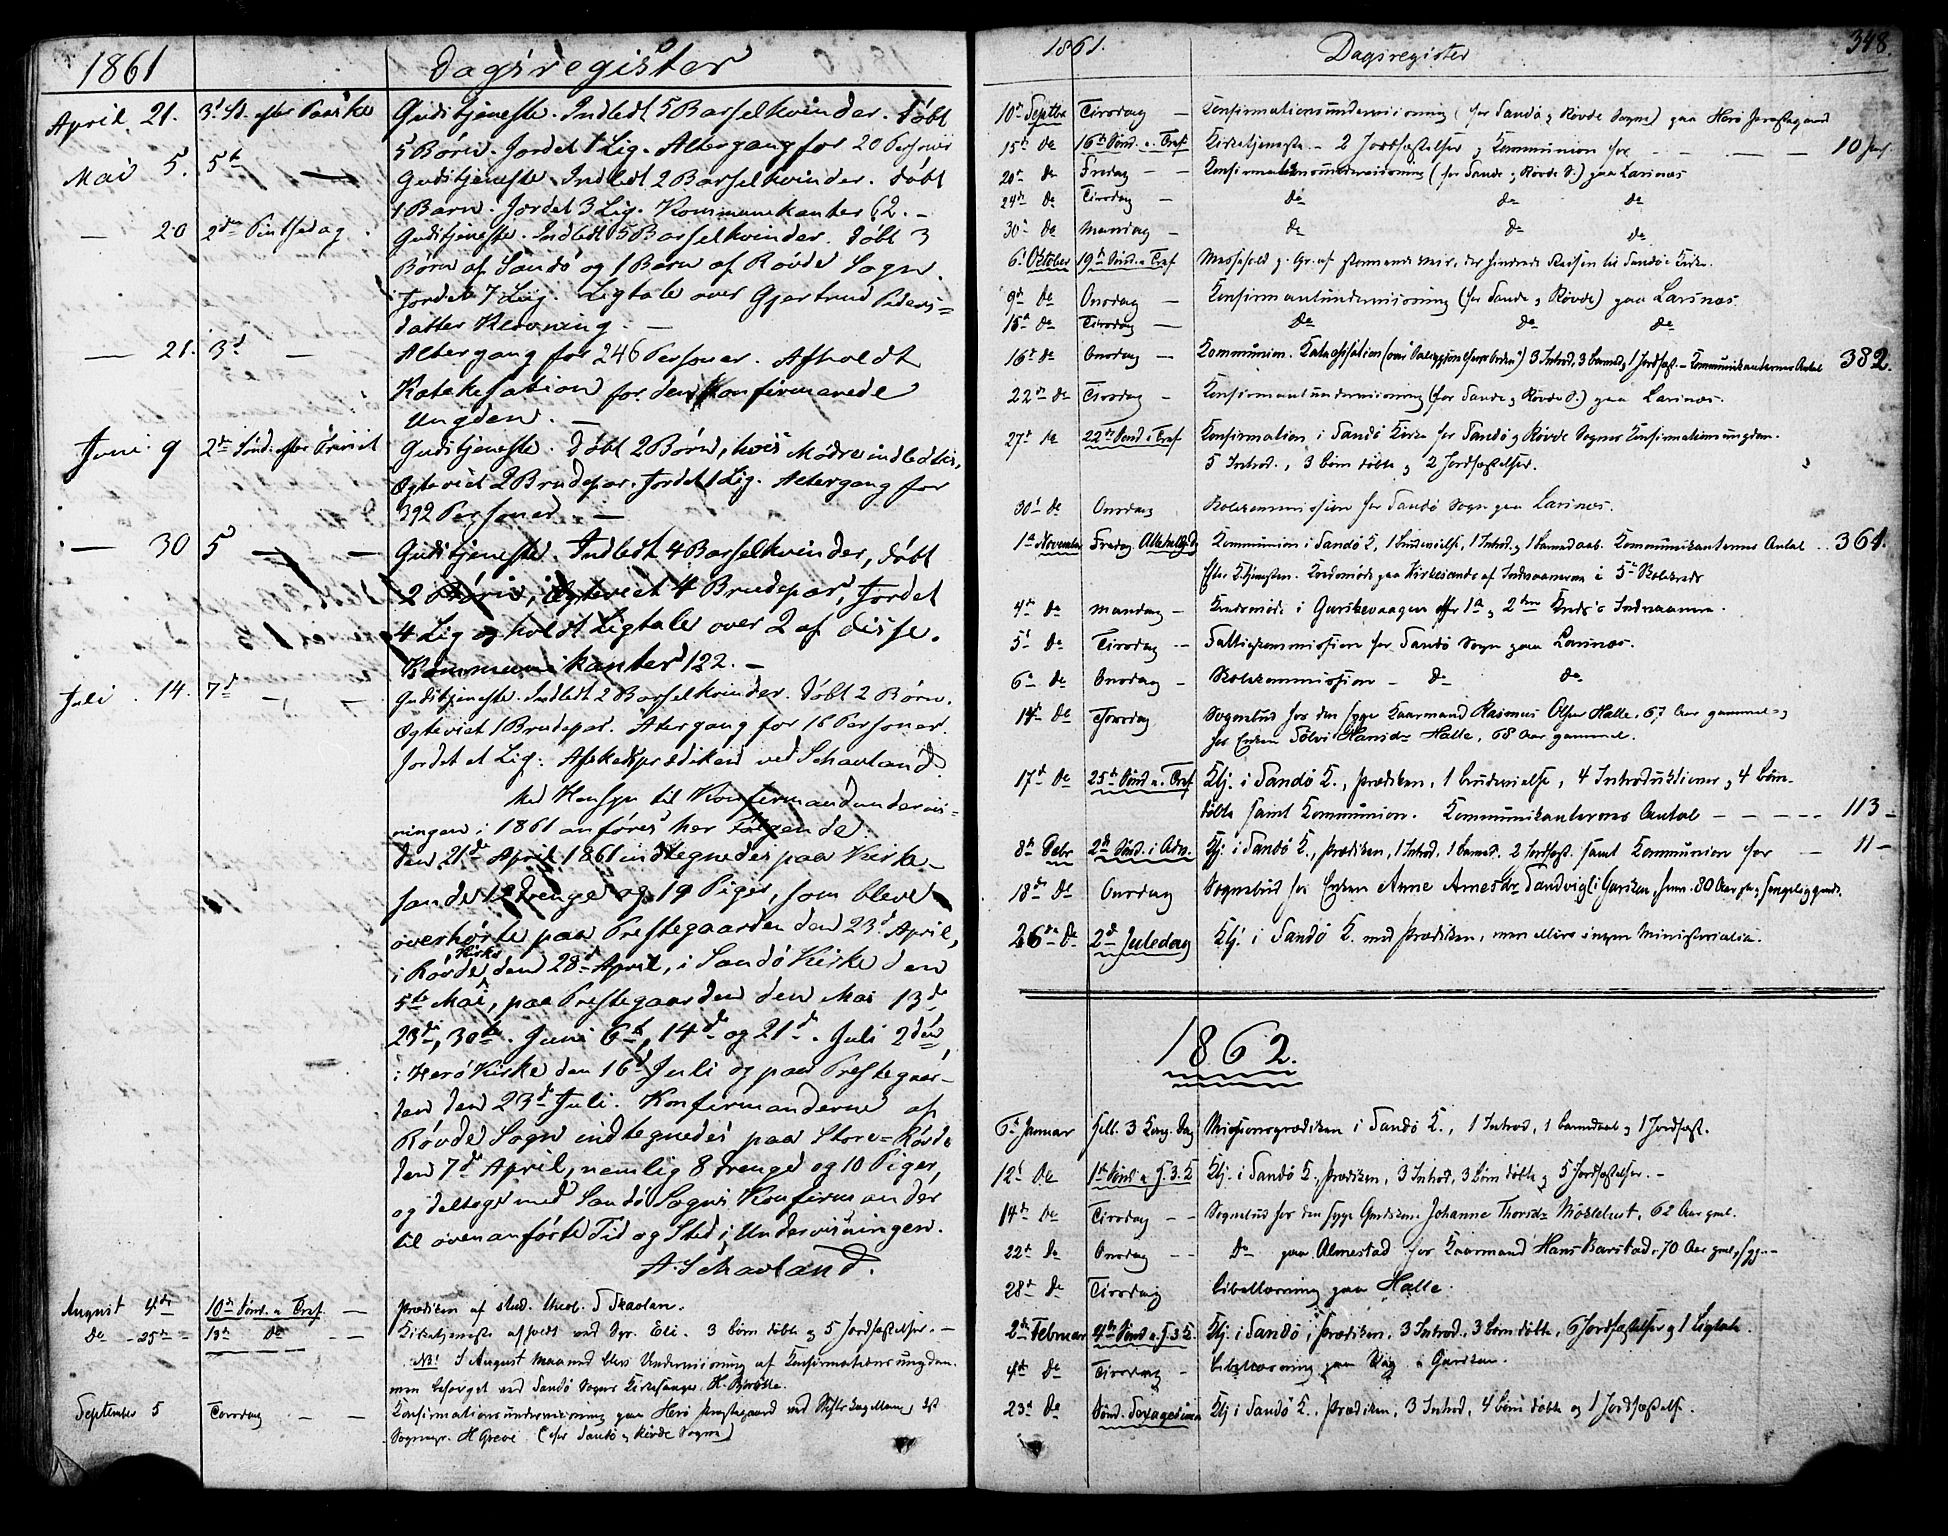 1861 Dagsregister
April 21. 3d S. efter Paaske Gudstjeneste. Indledt 5 Barselkvinder. Døbt
5 Børn. Jordet 1 Lig. Altergang for 20 Personer
Mai 5. 5te — Gudstjeneste. Indledt 2 Barselkvinder. Døbt
1 Barn. Jordet 3 Lig. Kommunikanter 62. —
— 20 2den Pintsedag. Gudstjeneste. Indledt 5 Barselkvinder. Døbt 3
Børn af Sandø og 1 Barn af Røvde Sogn.
Jordet 7 Lig. Ligtale over Gjertrud Peders=
datter Kleovning. —
— 21. 3d — Altergang for 246 Personer. Afholdt
Katekesation for den konfirmerede
Ungdom. —
Juni 9 2den Sønd. efter Trinit Gudstjeneste. Døbt 2 Børn, hvis Mødre indledtes,
Egteviet 2 Brudepar. Jordet 1 Lig. Altergang for
392 Personer —
— 30 5 — — Gudstjeneste. Indledt 4 Barselkvinder, døbt
2 Børn, Egteviet 4 Brudepar, Jordet
4 Lig og holdt Ligtale over 2 af disse.
Kommunikanter 122. —
Juli. 14. 7d — — Gudstjeneste. Indledt 2 Barselkvinder. Døbt 2 Børn.
Egteviet 1 Brudepar. Altergang for 16 Personer.
Jordet et Lig. Afskedsprædiken ved Schavland.
Med Hensyn til Konfirmandundervis=
ningen i 1861 anføres her Følgende:
Den 21de April 1861 indtegnedes paa Kirke
Sande 12 Drenge og 19 Piger, som bleve
overhørte paa Prestegaarden den 23d April,
i Røvde Kirke den 28d April, i Sandø Kirke den
5te Mai, paa Prestegaarden den Mai 13de
23de, 30te. Juni 6te, 14de og 21de. Juli 2den,
i Herø Kirke den 16d Juli og paa Prestegaar-
den den 23d Juli. Konfirmanderne af
Røvde Sogn indtegnedes paa Store=Røvde
den 7d April, nemlig 8 Drenge og 10 Piger,
og deltoge med Sandø Sogns Konfirmander
til ovenanførte Tid og Sted i Undervisningen.
A. Schavland.
August 4de 10de Sønd. e Tref. — Prædiken af stud. theol. Skavlan.
do — 25de 13de do — Kirketjeneste afholdt ved Sgr. Eli. 3 børn døbte og 5 Jordfæstelser. —
NB! I August Maaned blev Undervisning af Konfirmationsungdom.
men besørget ved Sandø Sogns Kirkesanger H.
September 5 Torsdag — — Konfirmationsundervisning paa Herø Præstegaard ved
Sognepr. H Greve (for Sandø & Røvde Sogne)
1861. Dagsregister 348
10de Septbr Tirsdag — Konfirmationsundervisning (for Sandø & Røvde Sogne) paa Herø Præstegaard
15de do 16de Sønd. e. Tref. Kirketjeneste — 2 Jordfæstelser & Kommunion for — — — 10 Pers.
20de do Fredag — — Konfirmationsundervisning (for Sande & Røvde S.) paa Larsnæs
24de do Tirsdag — do do do
30te do Mandag — do do do
6te Oktober 19de Sønd. e Tref Messefald p. Gr. af stormende Veir, der hindrede Reisen til Sandø Kirke.
9de do Onsdag — Konfirmantundervisning (for Sande & Røvde) paa Larsnæs
15de do Tirsdag — do do do
16de do Onsdag — Kommunion. Katekisation 3 Introd. 3 barned. & 1 Jordfæst. — Kommunikanternes Antal 382.
22de do Tirsdag — Konfirmantundervisning (for Sande & Røvde S.) paa Larsnæs.
27de do 22de Sønd. e Tref Konfirmation i Sandø Kirke for Sandø & Røvde Sognes Konfirmationsungdom.
5 Introd., 3 børn døbte & 2 Jordfæstelser.
30te do Onsdag Skolekommission for Sandø Sogn paa Larsnæs.
1ste November Fredag Allehelgd. Kommunion i Sandø K., 1 brudevielse, 1 Introd. & 1 barnedaab. Kommunikanternes Antal .. 361.
Efter Ktjenesten. Kredsmøde paa Kirkesande af Indvaanerne i 5te Skolekreds
4de do Mandag — Kredsmøde i Gurskevaagen for 1ste & 2den Kreds's Indvaanere.
5te do Tirsdag — Fattigkommission for Sandø Sogn paa Larsnæs.
6te do Onsdag — Skolekommission — do do
14de do Torsdag Sognebud for den syge Kaarmand Rasmus Olsen Halle, 67 Aar gammel &
for Enken Sølvi Hansdr Halle, 68 Aar gammel.
17de do 25de Sønd e. Tref Ktj. i Sandø K., Prædiken, 1 brudevielse, 4 Introduktioner & 4 børn
døbte samt Kommunion. Kommunikanternes Antal — — — — — 113 —
8de Debr 2den Sønd. i Adv. Ktj. i Sandø K., Prædiken, 1 Introd. 1 barned. 2 Jordfæst. samt Kommunion for — 11 —
18de do Onsdag Sognebud for Enken Anne Arnesdr. Sandvig i Gursken, 80 Aar gl. & sengeliggende.
26de do 2d Juledag Ktj. i Sandø K. med Prædiken, men ellers ingen Ministerialia.
1862.
6te Januar Hell. 3 Kong. Dag Missionsprædiken i Sandø K., 1 Introd, 1 barnedaab & 1 Jordfæst.
12te do 1ste Sønd e H. 3. K Ktj. i Sandø K., Prædiken, 3 Introd, 3 børn døbte & 5 Jordfæstelser. —
14de do Tirsdag — — Sognebud for den syge Johanne Thorsdr Møklebust, 62 Aar gml.
22de do Onsdag — — do paa Almestad for Kaarmand Hans Barstad, 70 Aar gml, syg. —
28de do Tirsdag Bibellæsning paa Halle.
2den Februar 4de Sønd e. H. 3 K. Ktj. i Sandø, Prædiken, 3 Introd., 3 børn døbte, 6 Jordfæstelser & 1 Ligtale.
4de do Tirsdag — Bibellæsning paa i Gursken.
23de do Sønd. Sexagesima Ktj i Sandø K., Prædiken, 3 Introd, 4 børn døbte og 1 Jordfæstelse.